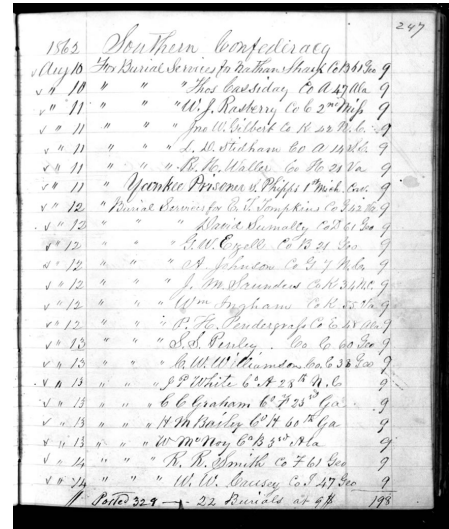 247
1862 Southern Confederacy
✓ Aug 10 For Burial Services for Nathan Sharp Co B 61 Geo 9
✓ " 10 " " " Thos Cassiday Co A 47 Ala 9
✓ " 11 " " " W. J. Rasberry Co C 2nd Miss 9
✓ " 11 " " " Jno W. Gilbert Co K 42 N.C. 9
✓ " 11 " " " L. D. Stidham Co A 14 S.C. 9
✓ " 11 " " " R. H. Waller Co H 21 Va 9
✓ " 11 " Yankee Prisoner Phipps 1st Mich. Cav. 9
✓ " 12 " Burial Services for E. T. Tompkins Co G 42 Va 9
✓ " 12 " " " David Co D 61 Geo 9
✓ " 12 " " " G. W. Ezell Co B 21 Geo 9
✓ " 12 " " " A. Johnson Co G 7 N.C. 9
✓ " 12 " " " J. M. Saunders Co K 34 N.C. 9
✓ " 12 " " " Wm Ingham Co K. 55 Va 9
✓ " 12 " " " P. H. Pendergrass Co E 48 Ala 9
✓ " 13 " " " S. S. Penley. Co C 60 Geo 9
✓ " 13 " " " C. W. Williamson Co. E 38 Geo 9
✓ " 13 " " " J P White Co A 28th N. C 9
✓ " 13 " " " C C Graham Co F 25th Ga 9
✓ " 13 " " " H M Bailey Co H 60th Ga 9
✓ " 13 " " " W McNoy Co B 3rd Ala 9
✓ " 14 " " " R. R. Smith Co F 61 Geo 9
✓ " 14 " " " W. W. Causey Co I 47 Geo 9
Posted 329 22 Burials at 9$ 198